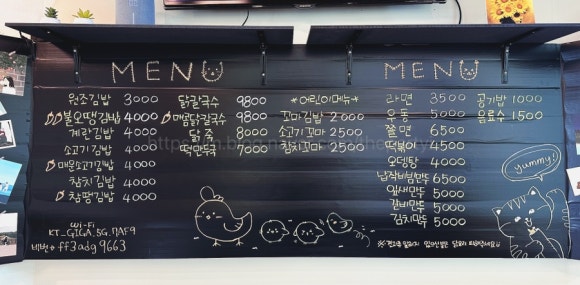 MENU
원조김밥 3000
불오떡김밥 4000
계란김밥 4000
소고기김밥 4000
매운소고기김밥 4000
참치김밥 4000
참땡김밥 4000
Wi-Fi
KT_GIGA_5G_7AF9
비번→ff3adg9663
닭칼국수 9800
매운닭칼국수 9800
닭죽 8000
떡만두국 7000
*어린이메뉴*
꼬마김밥 2000
소고기꼬마 2500
참치꼬마 2500
MENU
라면 3500
우동 5000
쫄면 6500
떡볶이 4500
오뎅탕 4000
납작비빔만두 6500
잎새만두 5000
갈비만두 5000
김치만두 5000
공기밥 1000
음료수 1500
yummy!